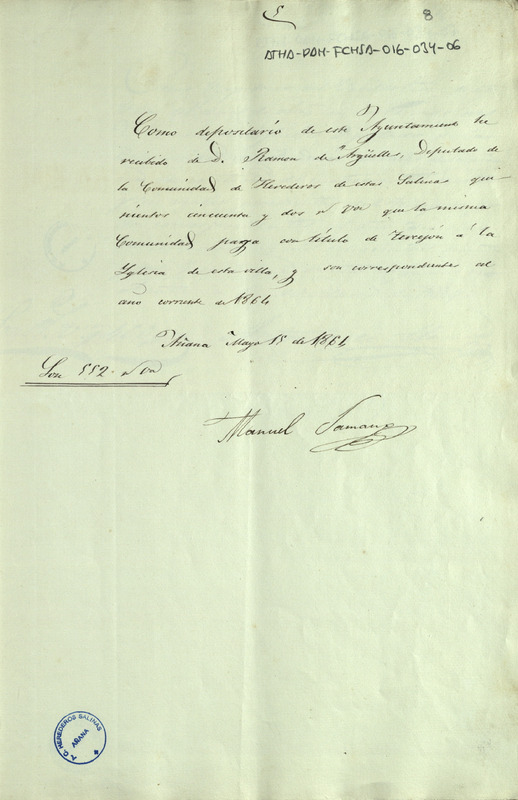 5
8
ATHA-DAH-FCHSA-016-034-06
Como depositario de este Ayuntamiento he
recibido de D. Ramon de Argüelles, Diputado de
la Comunidad de Herederos de estas Salinas qui-
nientos cincuenta y dos r.s v.n que la misma
Comunidad paga con titulo de Tercejon á la
Yglesia de esta villa, y son correspondientes al
año corriente de 1864
Añana Mayo 15 de 1864
Son 552. r.s v.n
Manuel Samano
A. C. HEREDEROS SALINAS
AÑANA